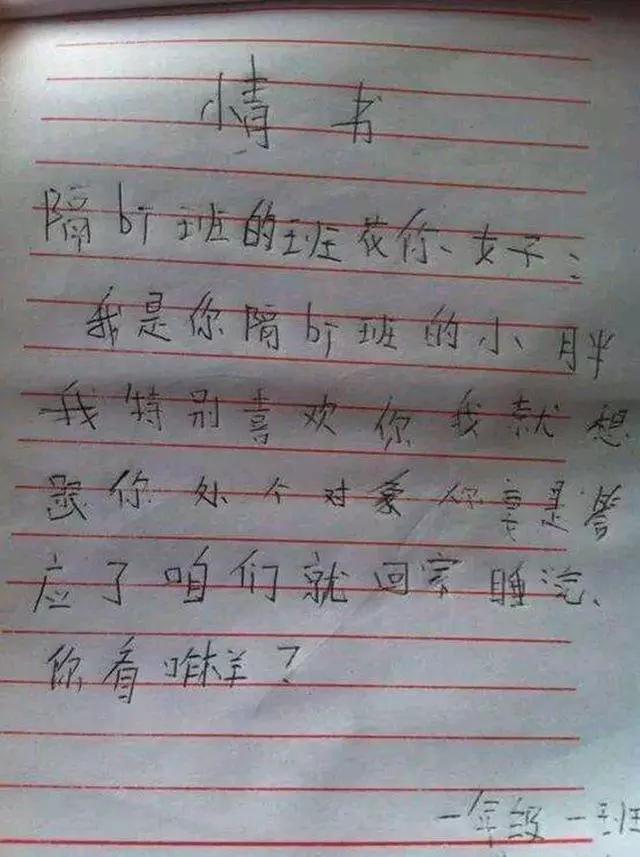 情书
隔bi班的班花你、女子：
我是你隔bi班的小月半
我特别喜欢你我就想
跟你处个对象你要是答
应了咱们就回家睡
你看咋样？
一年级一班